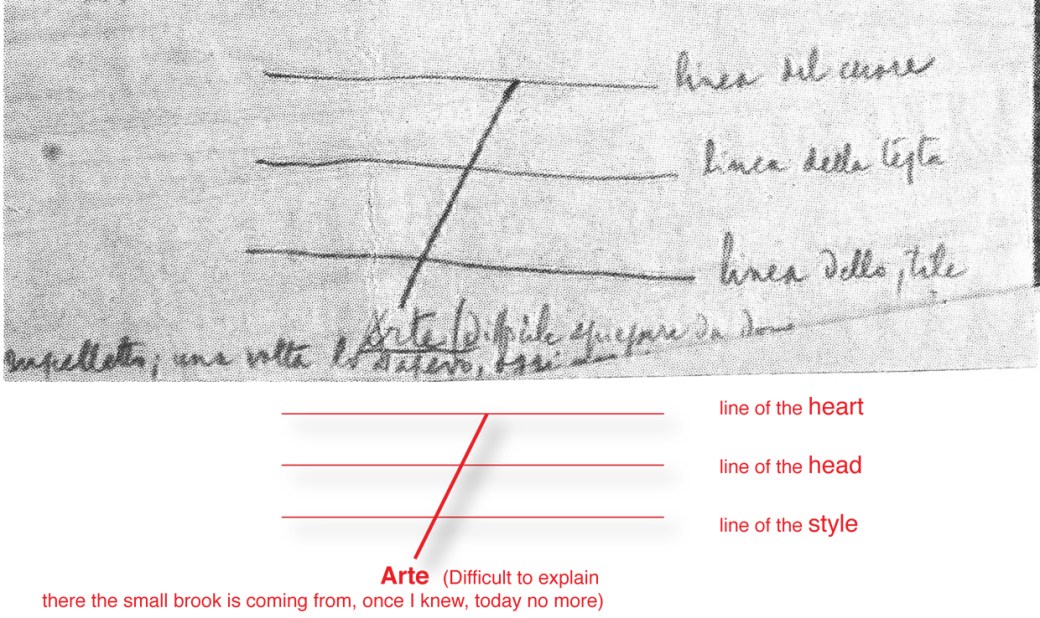 linea del cuore
linea della testa
linea dello stile
Arte (Difficile spiegare da
una volta lo sapevo, oggi
line of the heart
line of the head
line of the style
Arte (Difficult to explain
there the small brook is coming from, once I knew, today no more)